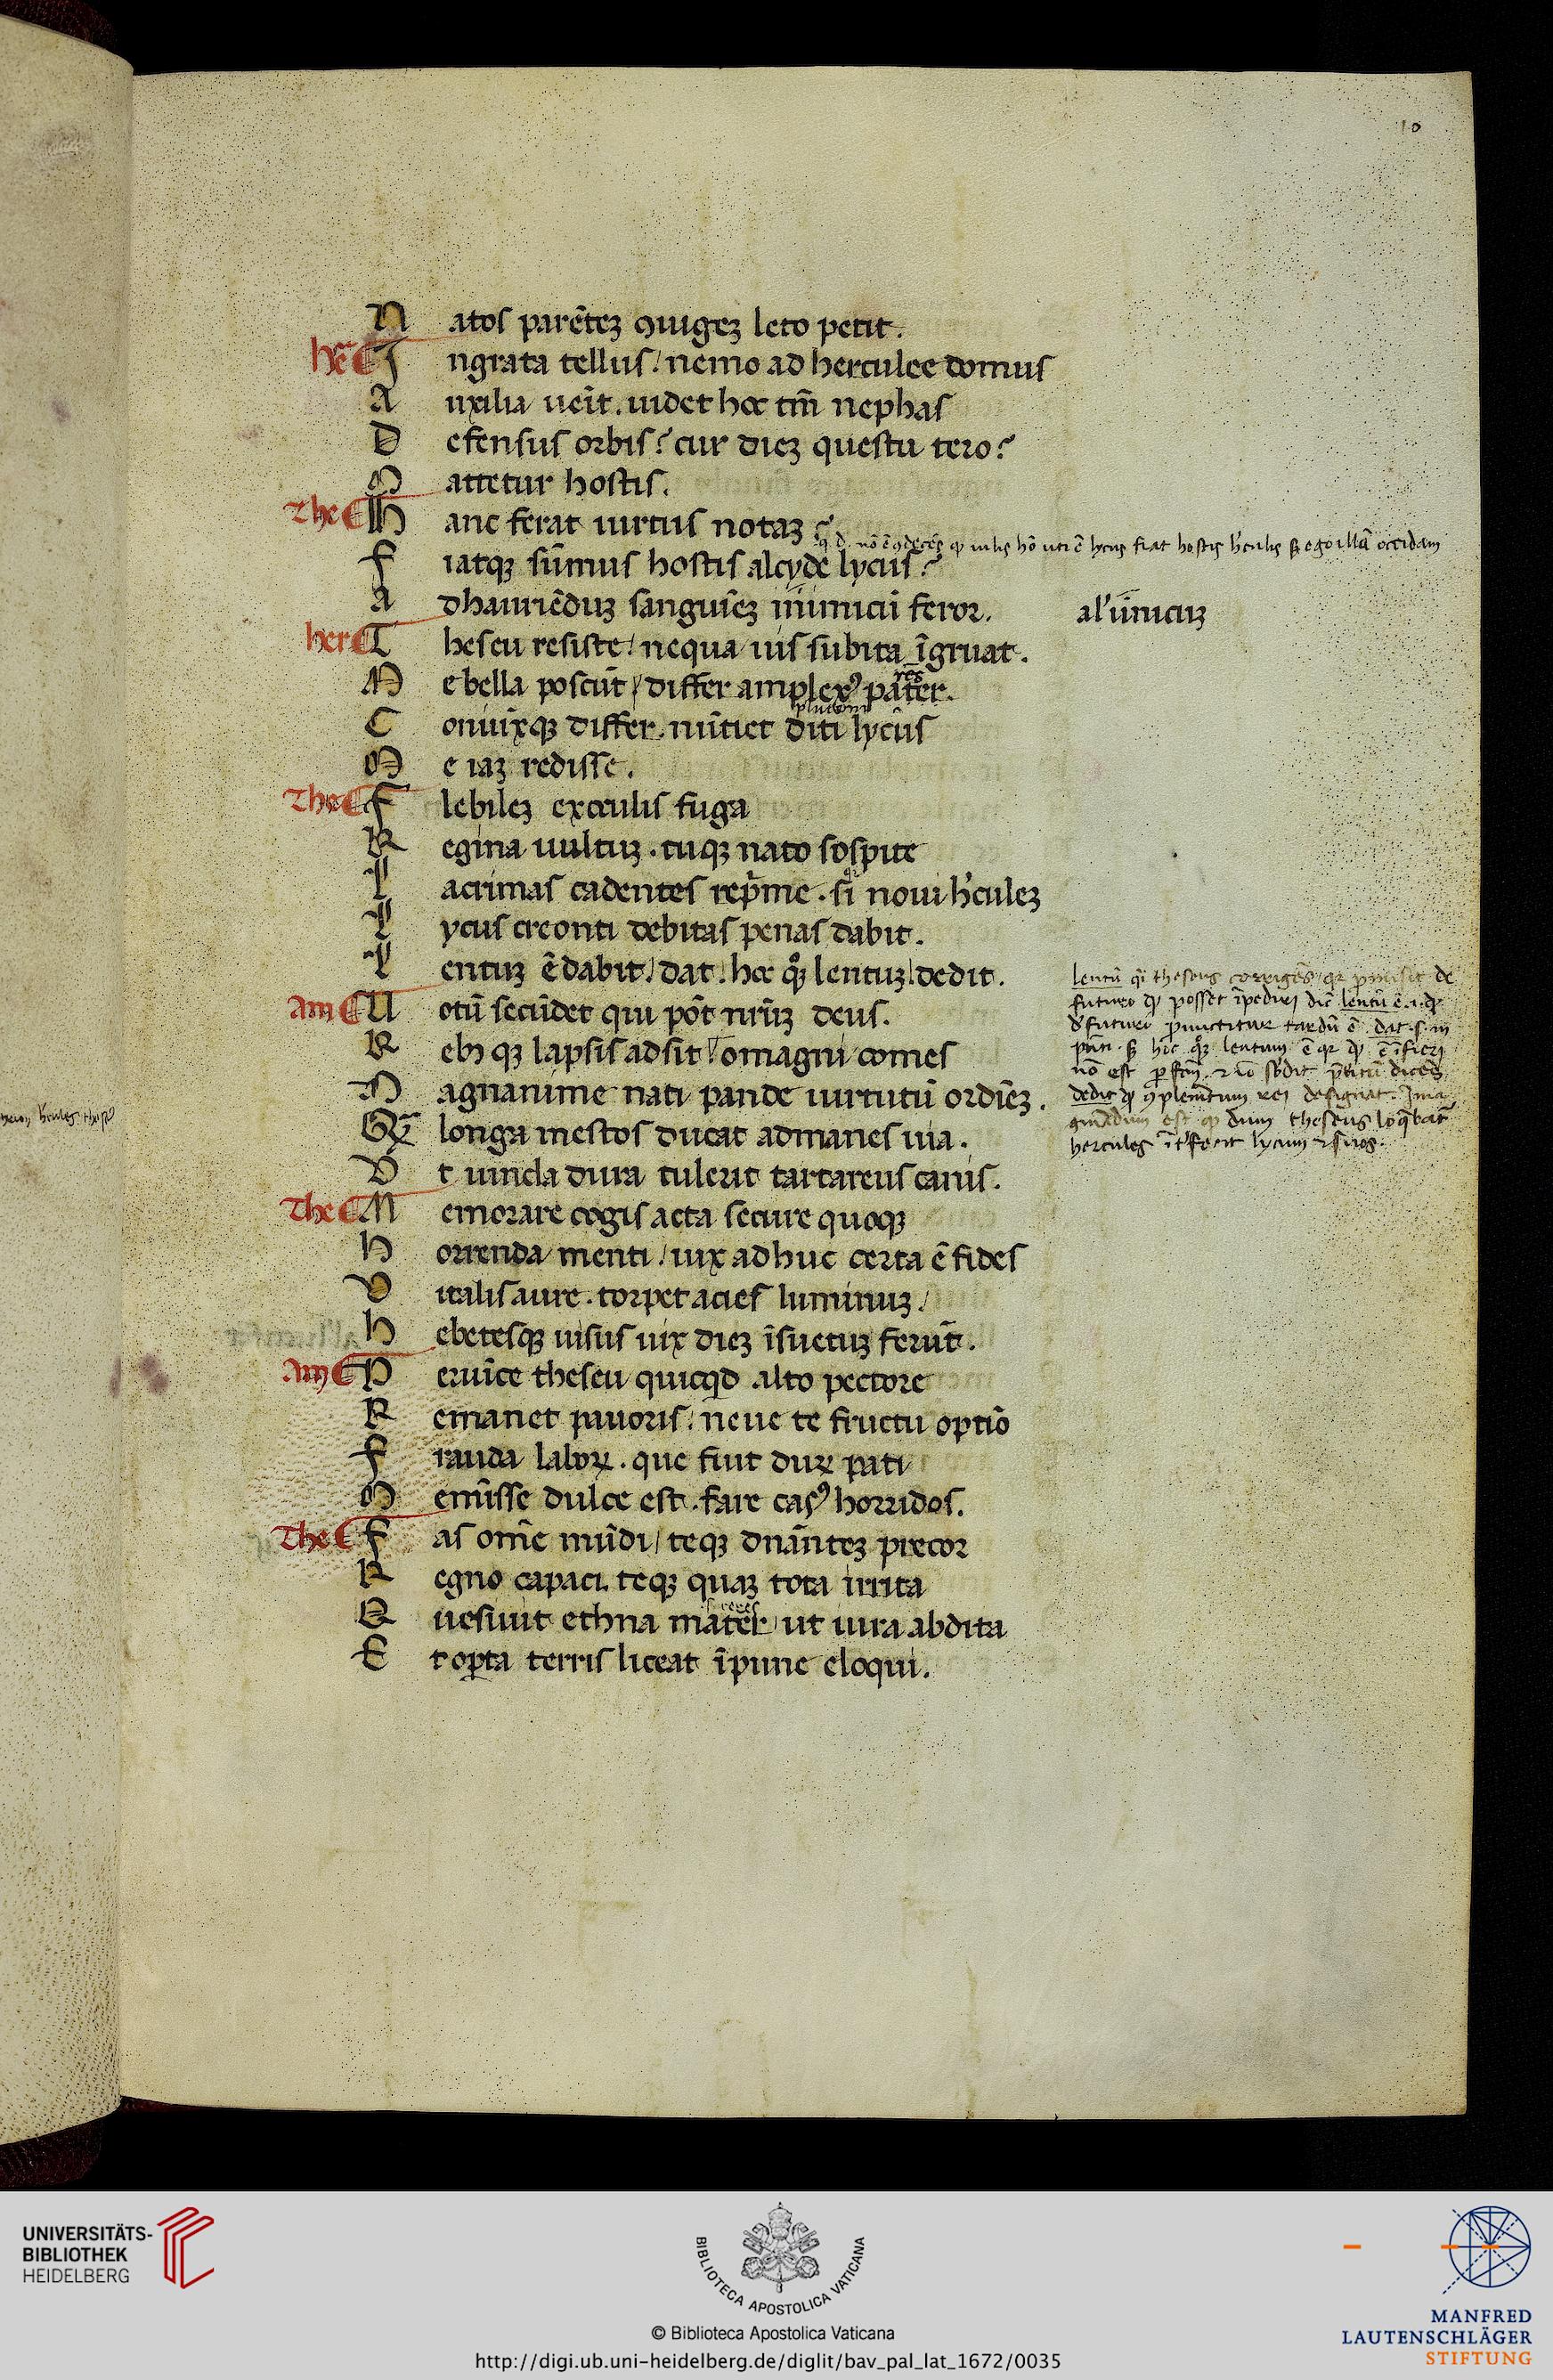 10
Natos parētez ꝯiugez leto petit.
hē Ingrata tellus / nemo ad herculee domus
Auxilia ueīt. uidet hoc tm̄ nephas
Defensus orbis? cur diez questu tero?
Mattetur hostis.
The Hanc ferat uirtus notaz?
Fiatqꝫ sūmus hostis alcyde lycus?
Adhauriēduz sanguīez inimicū feror.
al' inimicuz
her Theseu resiste / nequa uis subita īgruat.
Me bella poscūt / differ amplexꝰ pater.
res
Coniunxqꝫ differ. nūtiet diti lycus
plutoni
Me iaz redisse.
The Flebilez ex oculis fuga
Regina uultuz. tuqꝫ nato sospite
Lacrimas cadentes rep̄me. si noui hʼculez
Lycus creonti debitas penas dabit.
Lentuz ē dabit / dat / hoc qͦꝫ lentuz / dedit.
Am Uotū secūdet qui pōt nr̄uz deus.
Rebꝫqꝫ lapsis adsit / o magni comes
Magnanime nati pande uirtutū ordīez.
Qꝫ longa mestos ducat ad manes uia.
Vt uincla dura tulerit tartareus canis.
The Memorare cogis acta secure quoqꝫ
Horrenda menti / uix adhuc certa ē fides
Vitalis aure. torpet acies luminuz /
Hebetesqꝫ uisus uix diez īsuetuz ferūt.
Am Peruīce theseu quicqͥd alto pectore
Remanet pauoris / neue te fructu optīo
Frauda laboꝝ. que fuit duꝝ pati
Meminisse dulce est. fare casꝰ horridos.
The Fas om̄e mūdi / teqꝫ dn̄antez precor
Regno capaci. teqꝫ quaz tota irrita
Quesiuit ethna mater / ut iura abdita
ceres
Et opta terris liceat īpune eloqui.
lentū
futuro ꝙ posset īpediri dic̄ lentū ē .i. ꝙ
nō est
dedit ꝙ ꝯplemētum rei designat. Ima
ginādum est ꝙ dum theseus loq̄bat᷑
hercules īt'fecit lycum ⁊ suos.
UNIVERSITÄTS-
BIBLIOTHEK
HEIDELBERG
BIBLIOTECA APOSTOLICA VATICANA
© Biblioteca Apostolica Vaticana
http://digi.ub.uni-heidelberg.de/diglit/bav_pal_lat_1672/0035
MANFRED
LAUTENSCHLÄGER
STIFTUNG